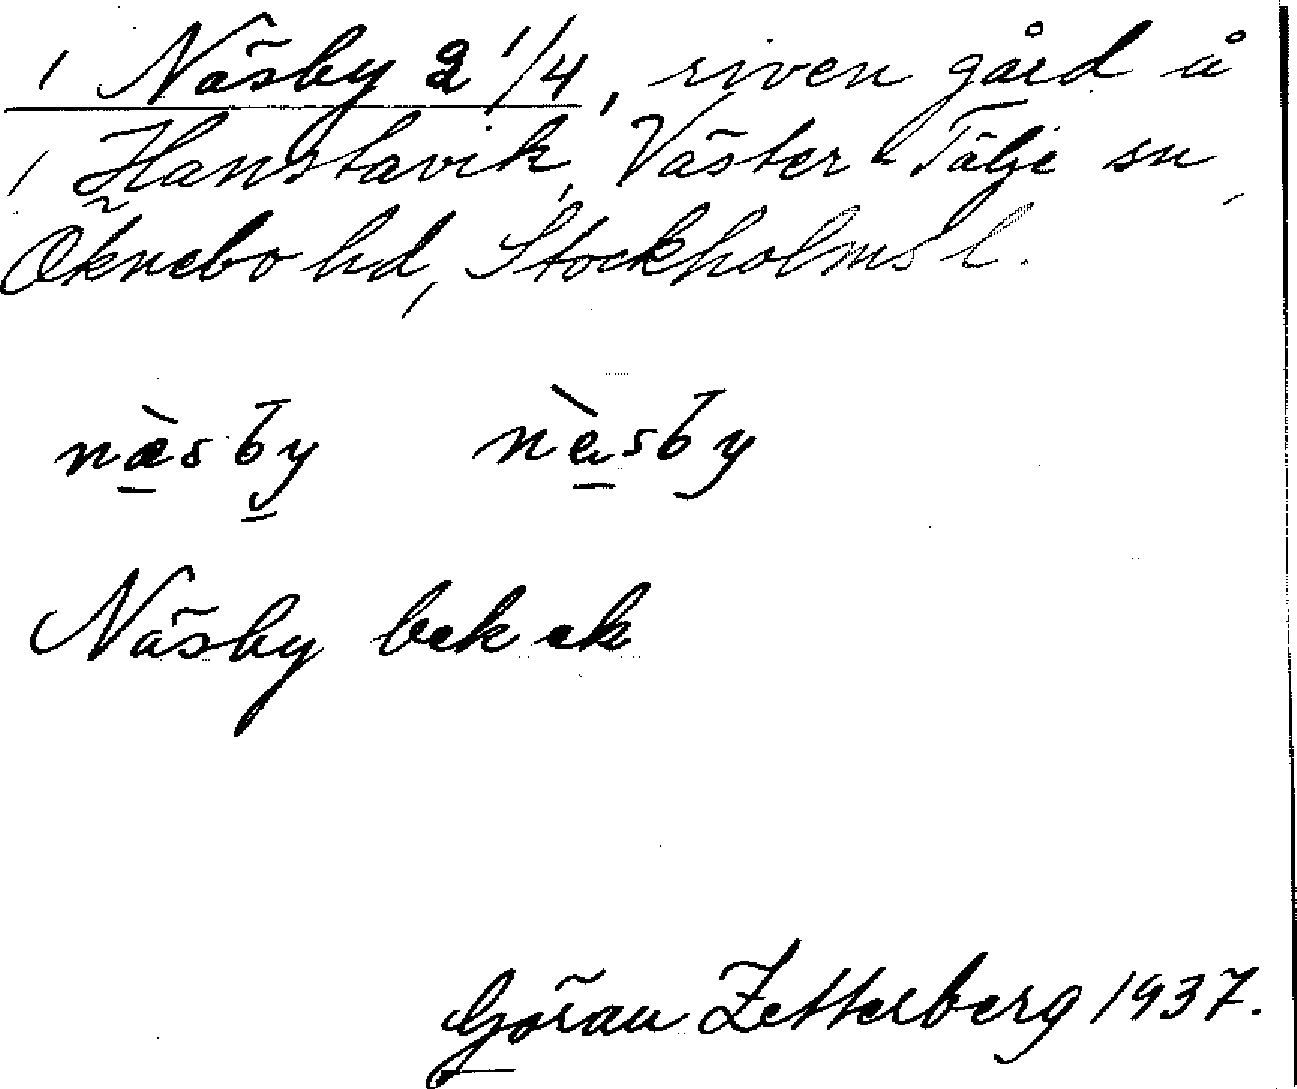 / Näsby 2 1/4, riven gård å
/ Hanstavik, Väster Tälje sn,
Öknebo hd, Stockholms l.
næ̀sby nèsby
Näsby bek ek
Göran Zetterberg 1937.